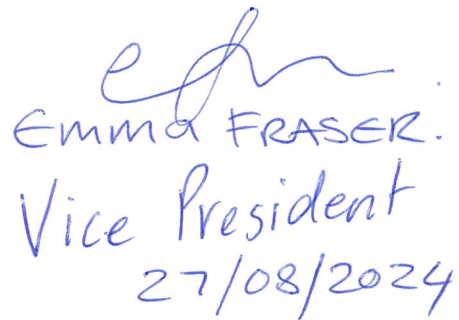 Emma FRASER.
Vice President
27/08/2024